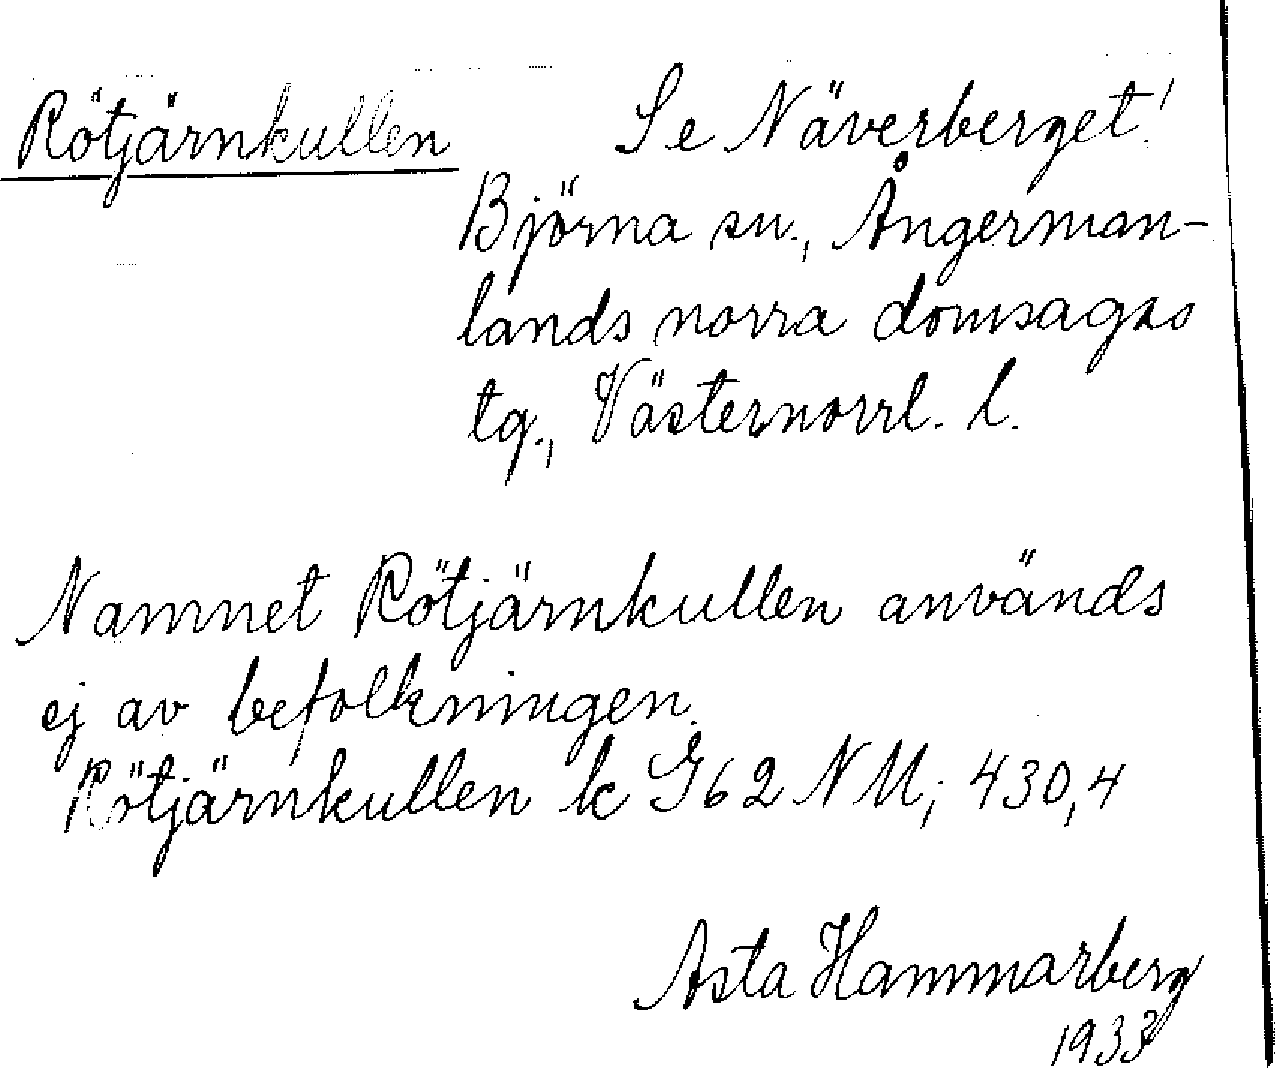 Rötjärnkullen Se Näverberget!
Björna sn., Ångerman-
lands norra domsagas
tg., Västernorrl. l.
Namnet Rötjärnkullen används
ej av befolkningen.
Rötjärnkullen k G62 NM; 430,4
Asta Hammarberg
1933